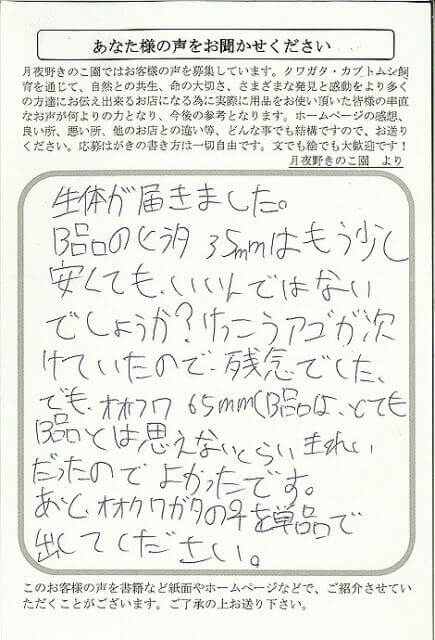 あなた様の声をお聞かせください
月夜野きのこ園ではお客様の声を募集しています。クワガタ・カブトムシ飼
育を通じて、自然との共生、命の大切さ、さまざまな発見と感動をより多く
の方達にお伝え出来るお店になる為に実際に用品をお使い頂いた皆様の率直
なお声が何よりの力となり、今後の参考となります。ホームページの感想、
良い所、悪い所、他のお店との違い等、どんな事でも結構ですので、お送り
ください。応募はがきの書き方は一切自由です。文でも絵でも大歓迎です！
月夜野きのこ園 より
生体が届きました。
B品のヒラタ 35mmはもう少し
安くても、いいんではない
でしょうか？けっこうアゴが欠
けていたので、残念でした、
でも、オオクワ 65mm(B品は、とても
B品とは思えないくらい きれい
だったので よかったです。
あと、オオクワガタの♀を単品で
出してください。
このお客様の声を書籍など紙面やホームページなどで、ご紹介させてい
ただくことがございます。ご了承の上お送り下さい。